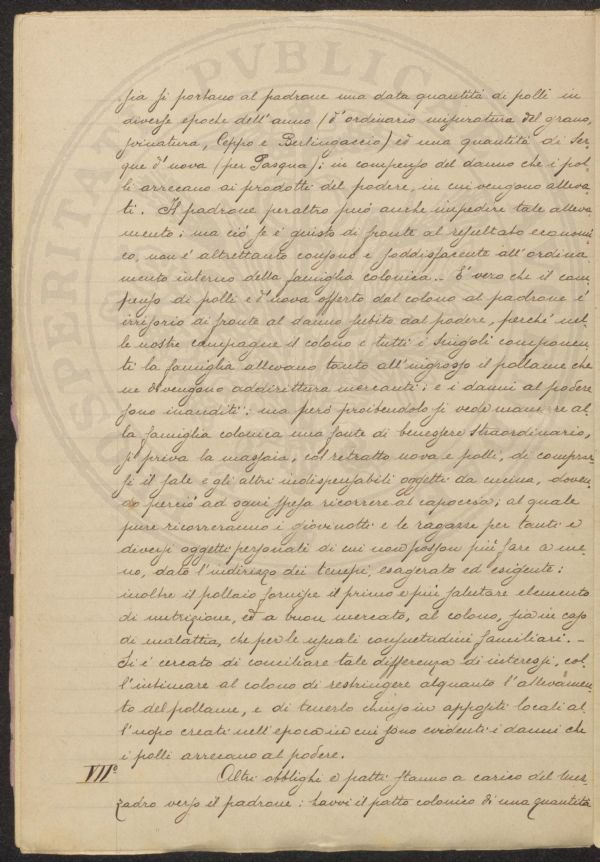 sia si portano al padrone una data quantità di polli in
diverse epoche dell'anno (d'ordinario misuratura del grano,
svinatura, Ceppo e Berlingaccio) ed una quantità di ser
que d'uova (per Pasqua); in compenso del danno che i pol
li arrecano ai prodotti del podere, in cui vengono alleva
ti. Il padrone peraltro può anche impedire tale alleva
mento; ma ciò se è giusto di fronte al resultato economi
co, non è altrettanto consono e soddisfacente all'ordina
mento interno della famiglia colonica.. È vero che il com
penso di polli e d'uova offerto dal colono al padrone è
irrisorio di fronte al danno subito dal podere, perché nel
le nostre campagne il colono e tutti i singoli componen
ti la famiglia allevano tanto all'ingrosso il pollame che
ne divengono addirittura mercanti; e i danni al podere
sono inauditi; ma però proibendolo si vede mancare al
la famiglia colonica una fonte di benessere straordinario,
si priva la massaia, col retratto uova e polli, di comprar
si il sale e gli altri indispensabili oggetti da cucina, doven
do perciò ad ogni spesa ricorrere al capoccia; al quale
pure ricorreranno i giovinotti e le ragazze per tanti e
diversi oggetti personali di cui non posson più fare a me
no, dato l'indirizzo dei tempi, esagerato ed esigente;
inoltre il pollaio fornisce il primo e più salutare elemento
di nutrizione, ed a buon mercato, al colono, sia in caso
di malattia, che per le usuali consuetudini familiari. –
Si è cercato di conciliare tale differenza di interessi, col
l'intimare al colono di restringere alquanto l'allevamen
to del pollame, e di tenerlo chiuso in appositi locali al
l'uopo creati nell'epoca in cui sono evidenti i danni che
i polli arrecano al podere.
VII° Altri obblighi e patti stanno a carico del mez
zadro verso il padrone: havvi il patto colonico di una quantità